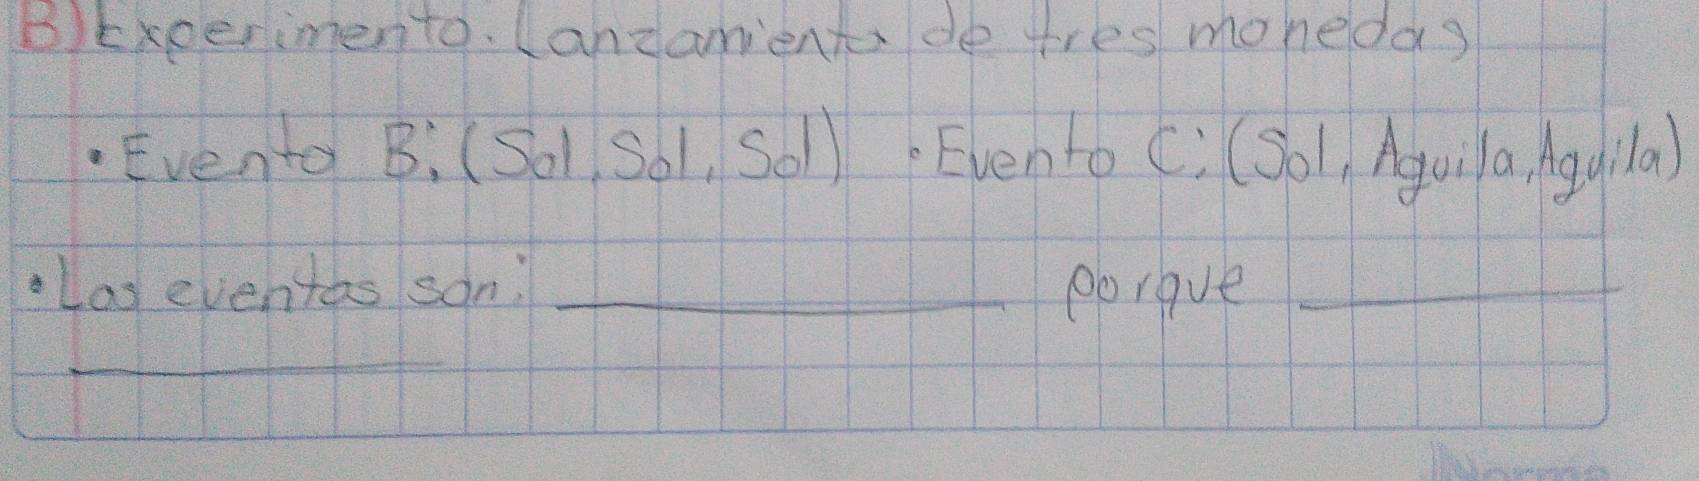 B) Experimento. Lanzamiento de tres monedas
• Evento B: (Sol, Sol, Sol) • Evento C: (Sol, Aguila, Aguila)
• Los eventos son: ____________ porque ____________
____________
Norma